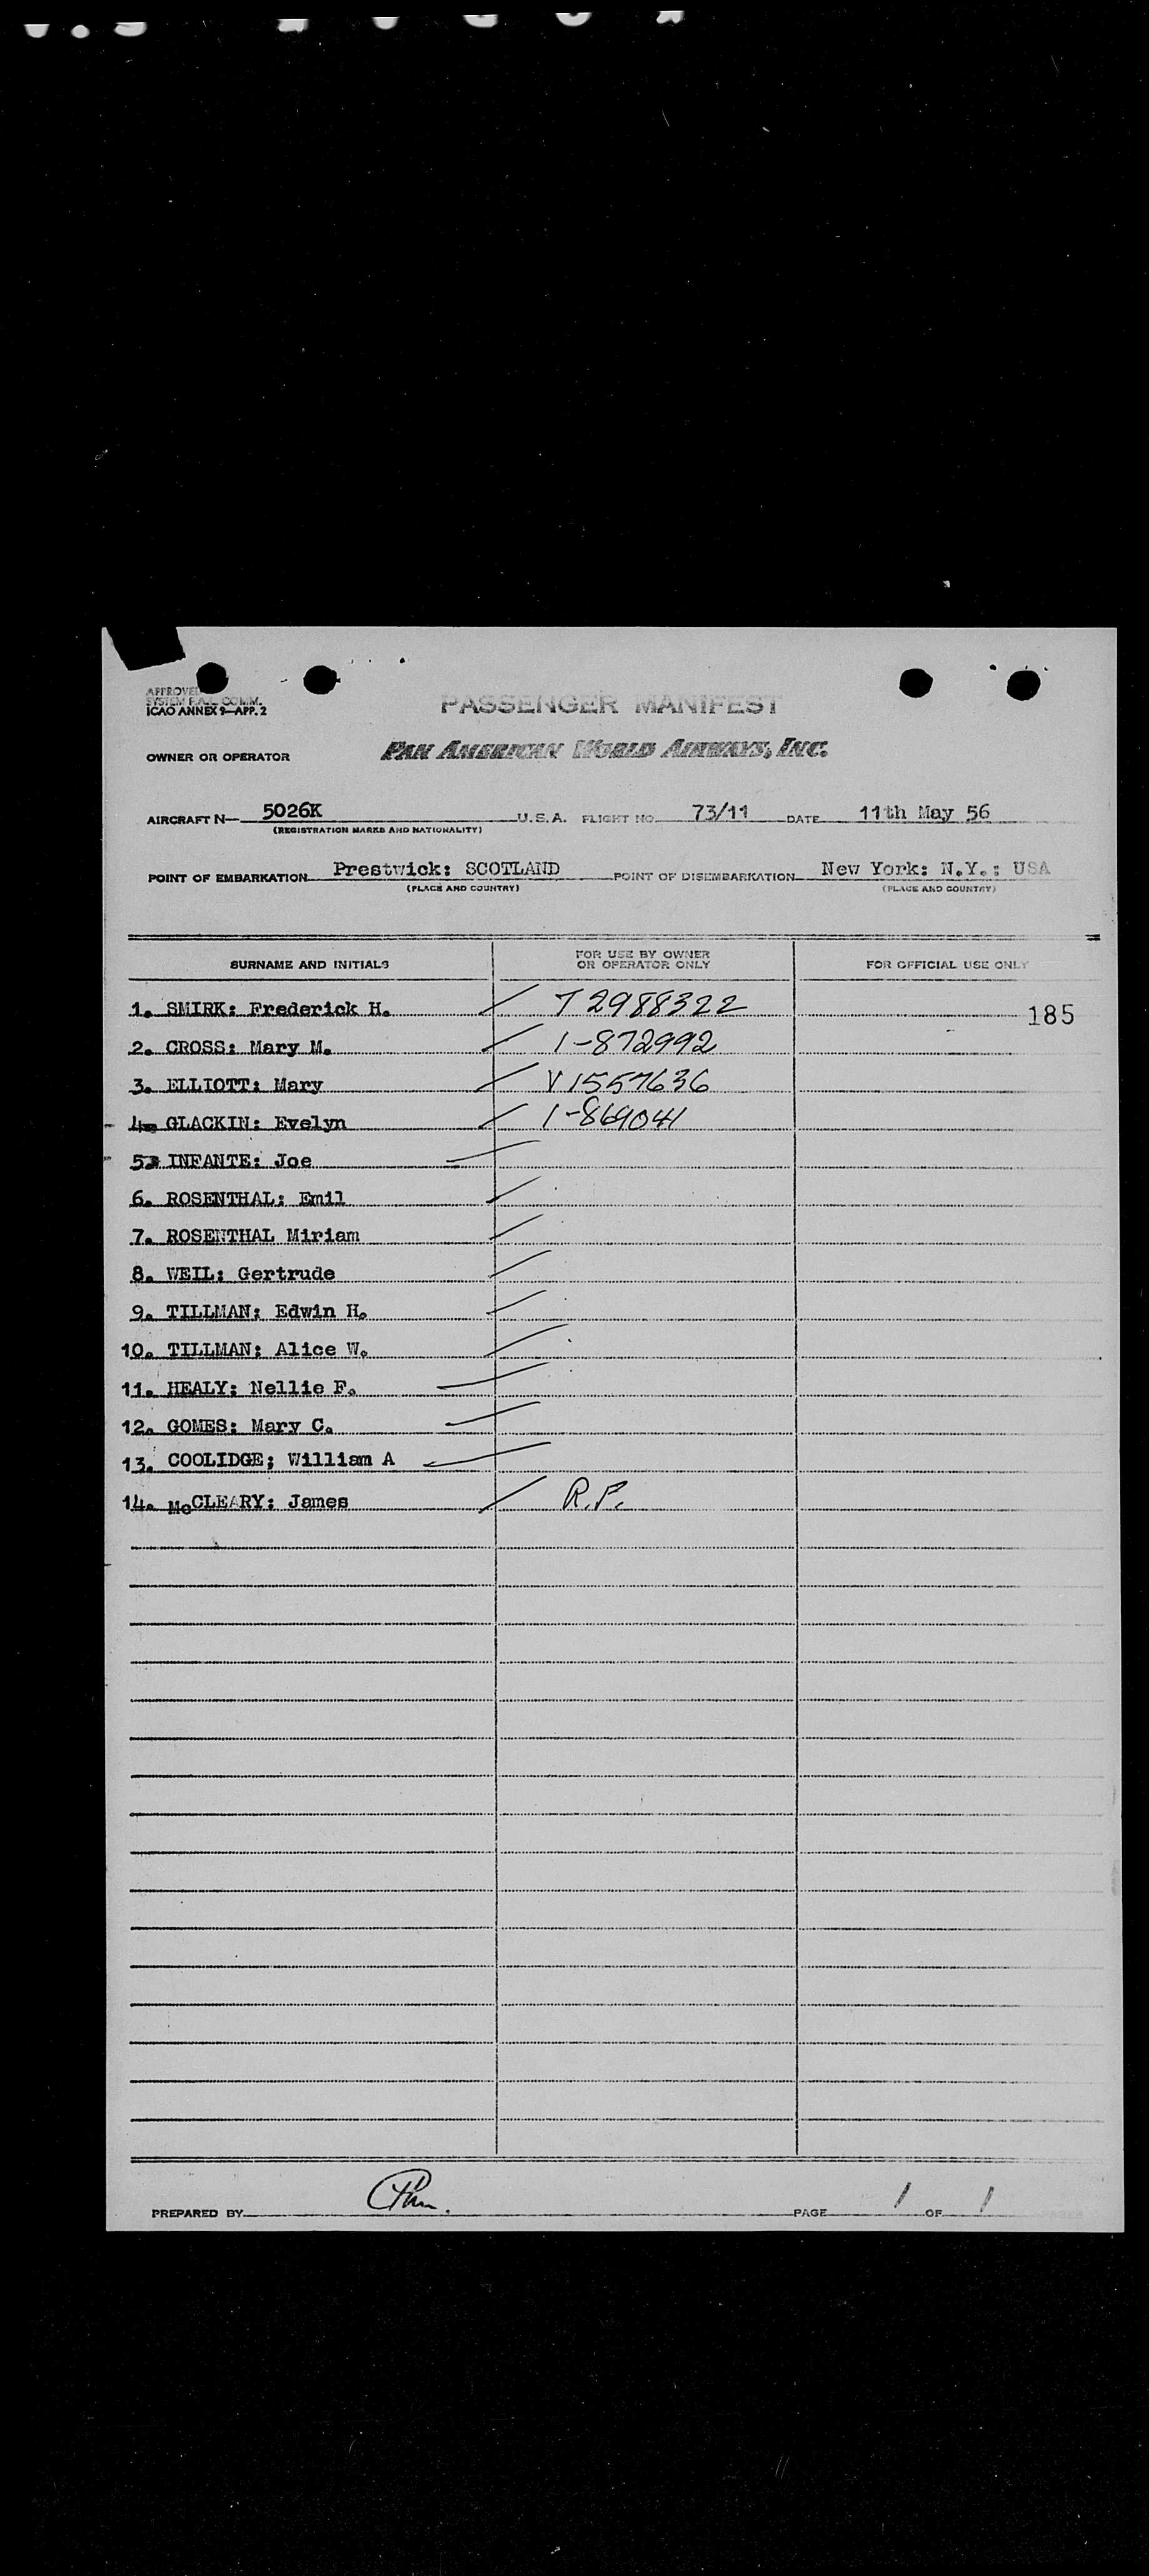 APPROVED
SYSTEM F.A.L. COMM.
ICAO ANNEX 9—APP. 2
PASSENGER MANIFEST
OWNER OR OPERATOR PAN AMERICAN WORLD AIRWAYS, INC.
AIRCRAFT N— 5026K U.S.A. FLIGHT NO. 73/11 DATE 11th May 56
(REGISTRATION MARKS AND NATIONALITY)
POINT OF EMBARKATION Prestwick: SCOTLAND POINT OF DISEMBARKATION New York: N.Y.: USA
(PLACE AND COUNTRY) (PLACE AND COUNTRY)
SURNAME AND INITIALS FOR USE BY OWNER OR OPERATOR ONLY FOR OFFICIAL USE ONLY
1. SMIRK: Frederick H. T2988322 185
2. CROSS: Mary M. 1-872992
3. ELLIOTT: Mary V1557636
4. GLACKIN: Evelyn 1-869041
5. INFANTE: Joe
6. ROSENTHAL: Emil
7. ROSENTHAL Miriam
8. WEIL: Gertrude
9. TILLMAN: Edwin H.
10. TILLMAN: Alice W.
11. HEALY: Nellie F.
12. GOMES: Mary C.
13. COOLIDGE; William A
14. McCLEARY: James R.P.
PREPARED BY PAGE 1 OF 1 PAGES